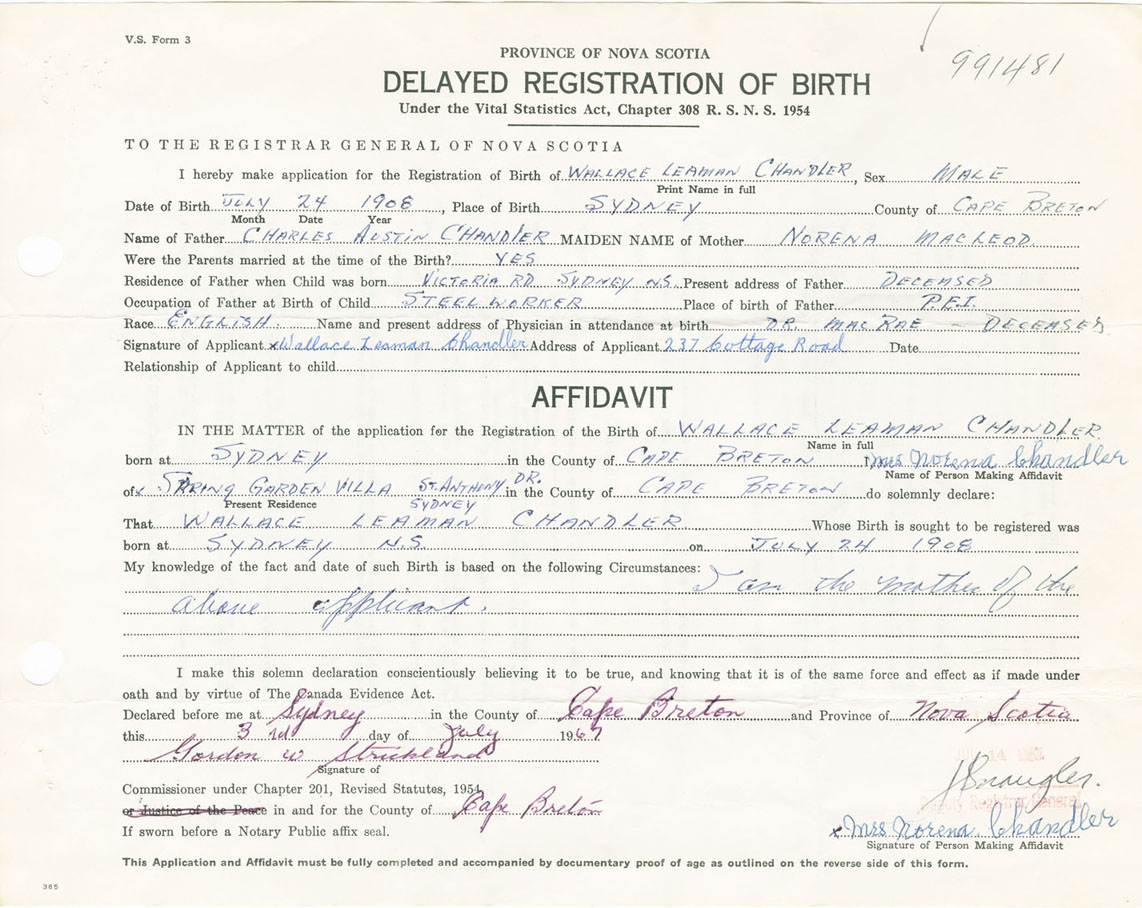 V.S. Form 3
991481
PROVINCE OF NOVA SCOTIA
DELAYED REGISTRATION OF BIRTH
Under the Vital Statistics Act, Chapter 308 R. S. N. S. 1954
TO THE REGISTRAR GENERAL OF NOVA SCOTIA
I hereby make application for the Registration of Birth of WALLACE LEAMAN CHANDLER, Sex MALE
Print Name in full
Date of Birth JULY 24 1908, Place of Birth SYDNEY County of CAPE BRETON
Month Date Year
Name of Father CHARLES AUSTIN CHANDLER MAIDEN NAME of Mother NORENA MACLEOD.
Were the Parents married at the time of the Birth? YES
Residence of Father when Child was born VICTORIA RD SYDNEY N.S. Present address of Father DECEASED
Occupation of Father at Birth of Child STEELWORKER Place of birth of Father P.E.I.
Race ENGLISH. Name and present address of Physician in attendance at birth DR. MACRAE - DECEASED
Signature of Applicant x Wallace Leaman Chandler Address of Applicant 237 Cottage Road Date
Relationship of Applicant to child
AFFIDAVIT
IN THE MATTER of the application for the Registration of the Birth of WALLACE LEAMAN CHANDLER
Name in full
born at SYDNEY in the County of CAPE BRETON I Mrs Norena Chandler
Name of Person Making Affidavit
of x SPRING GARDEN VILLA ST. ANTHONY DR. SYDNEY in the County of CAPE BRETON do solemnly declare:
Present Residence
That WALLACE LEAMAN CHANDLER Whose Birth is sought to be registered was
born at SYDNEY N.S. on JULY 24 1908
My knowledge of the fact and date of such Birth is based on the following Circumstances: I am the mother of the
above applicant.
I make this solemn declaration conscientiously believing it to be true, and knowing that it is of the same force and effect as if made under
oath and by virtue of The Canada Evidence Act.
Declared before me at Sydney in the County of Cape Breton and Province of Nova Scotia
this 3rd day of July 1967
Gordon W Strickland
Signature of
Commissioner under Chapter 201, Revised Statutes, 1954,
or Justice of the Peace in and for the County of Cape Breton
If sworn before a Notary Public affix seal.
Deputy Registrar General
x Mrs Norena Chandler
Signature of Person Making Affidavit
This Application and Affidavit must be fully completed and accompanied by documentary proof of age as outlined on the reverse side of this form.
385